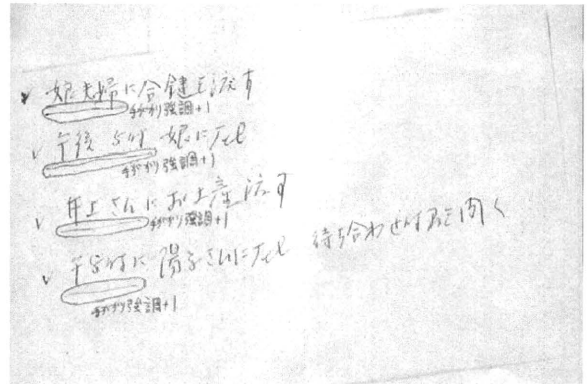 娘夫婦に合鍵を渡す
手がかり強調+1
午後5時 娘にTel
手がかり強調+1
井上さんにお土産渡す
手がかり強調+1
午前中に 陽子さんにTel 待ち合わせ時間を聞く
手がかり強調+1